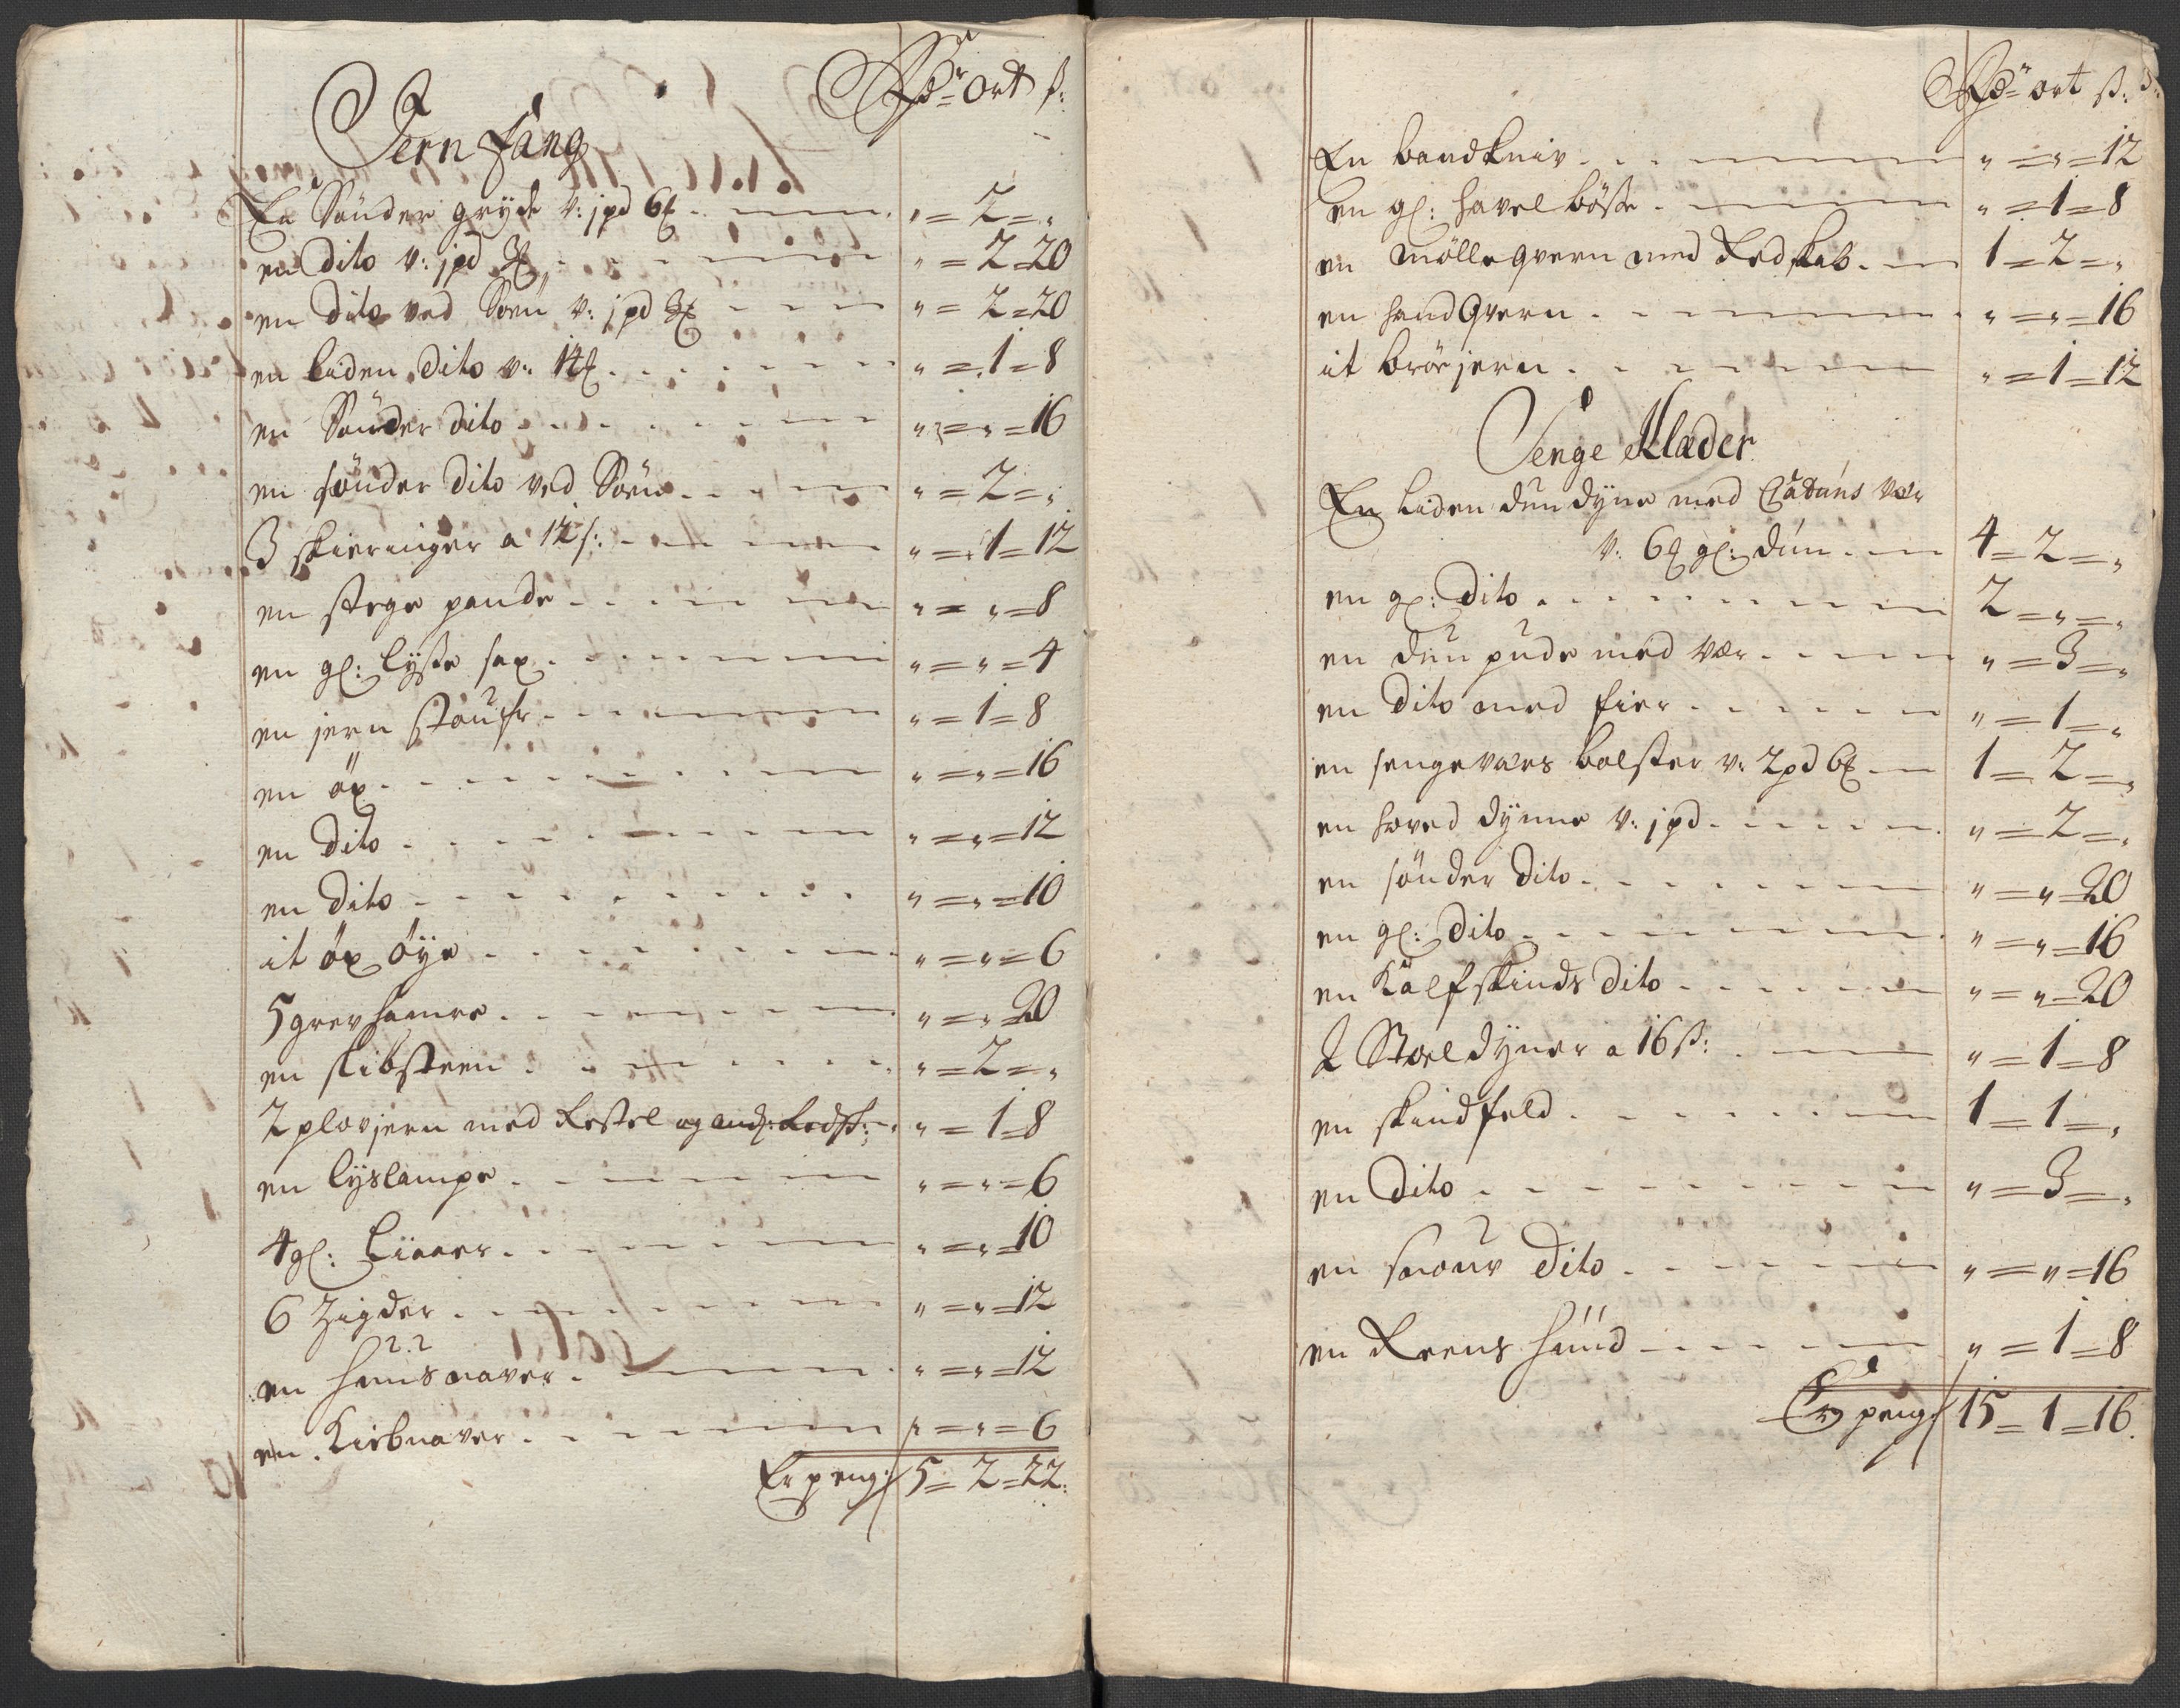 Rdr ort ß:
Jern fang
En Sönder gryde v: 1pd 6 ℔ " = 2 = "
en dito v: 1pd 3 ℔ " = 2 = 20
en dito ved Soen v: 1pd 3 ℔ " = 2 = 20
en liden dito v: 14 ℔ " = 1 = 8
en Sönder dito " = " = 16
en sönder dito ved Soen " = 2 = "
3 skieringer a 12 ß: " = 1 = 12
en stege pande " = " = 8
en gl: lyse sax " = " = 4
en jern staufr " = 1 = 8
en öx " = " = 16
en dito " = " = 12
en dito " = " = 10
it öx öye " = " = 6
5 grev hamre " = " = 20
en slibsteen " = 2 = "
2 plovjern med Restel og andz: Redsk: " = 1 = 8
en lyslampe " = " = 6
4 gl: Liaaer " = " = 10
6 Zigder " = " = 12
en huusnaver " = " = 12
en Kiebnaver " = " = 6
Er peng: 5 = 2 = 22:
Rdr ort ß:
En baandkniv " = " = 12
en gl: havel bösse " = 1 = 8
en mölleqvern med Redskab 1 = 2 = "
en handqvern " = " = 16
it bröe jern " = 1 = 12
Senge Klæder
En liden dun dyne med Catuns vær
v: 6 ℔ gl: dun 4 = 2 = "
en gl: dito 2 = " = "
en dun pude med vær " = 3 = "
en dito med fier " = 1 = "
en sengeværs bolster v: 2pd 6 ℔ 1 = 2 = "
en hoved dynne v: 1pd " = 2 = "
en sönder dito " = " = 20
en gl: dito " = " = 16
en Kalfskinds dito " = " = 20
2 Stoel dyner a 16 ß: " = 1 = 8
en skindfeld 1 = 1 = "
en dito " = 3 = "
en snau dito " = " = 16
en Reens huud " = 1 = 8
Er peng: 15 = 1 = 16.